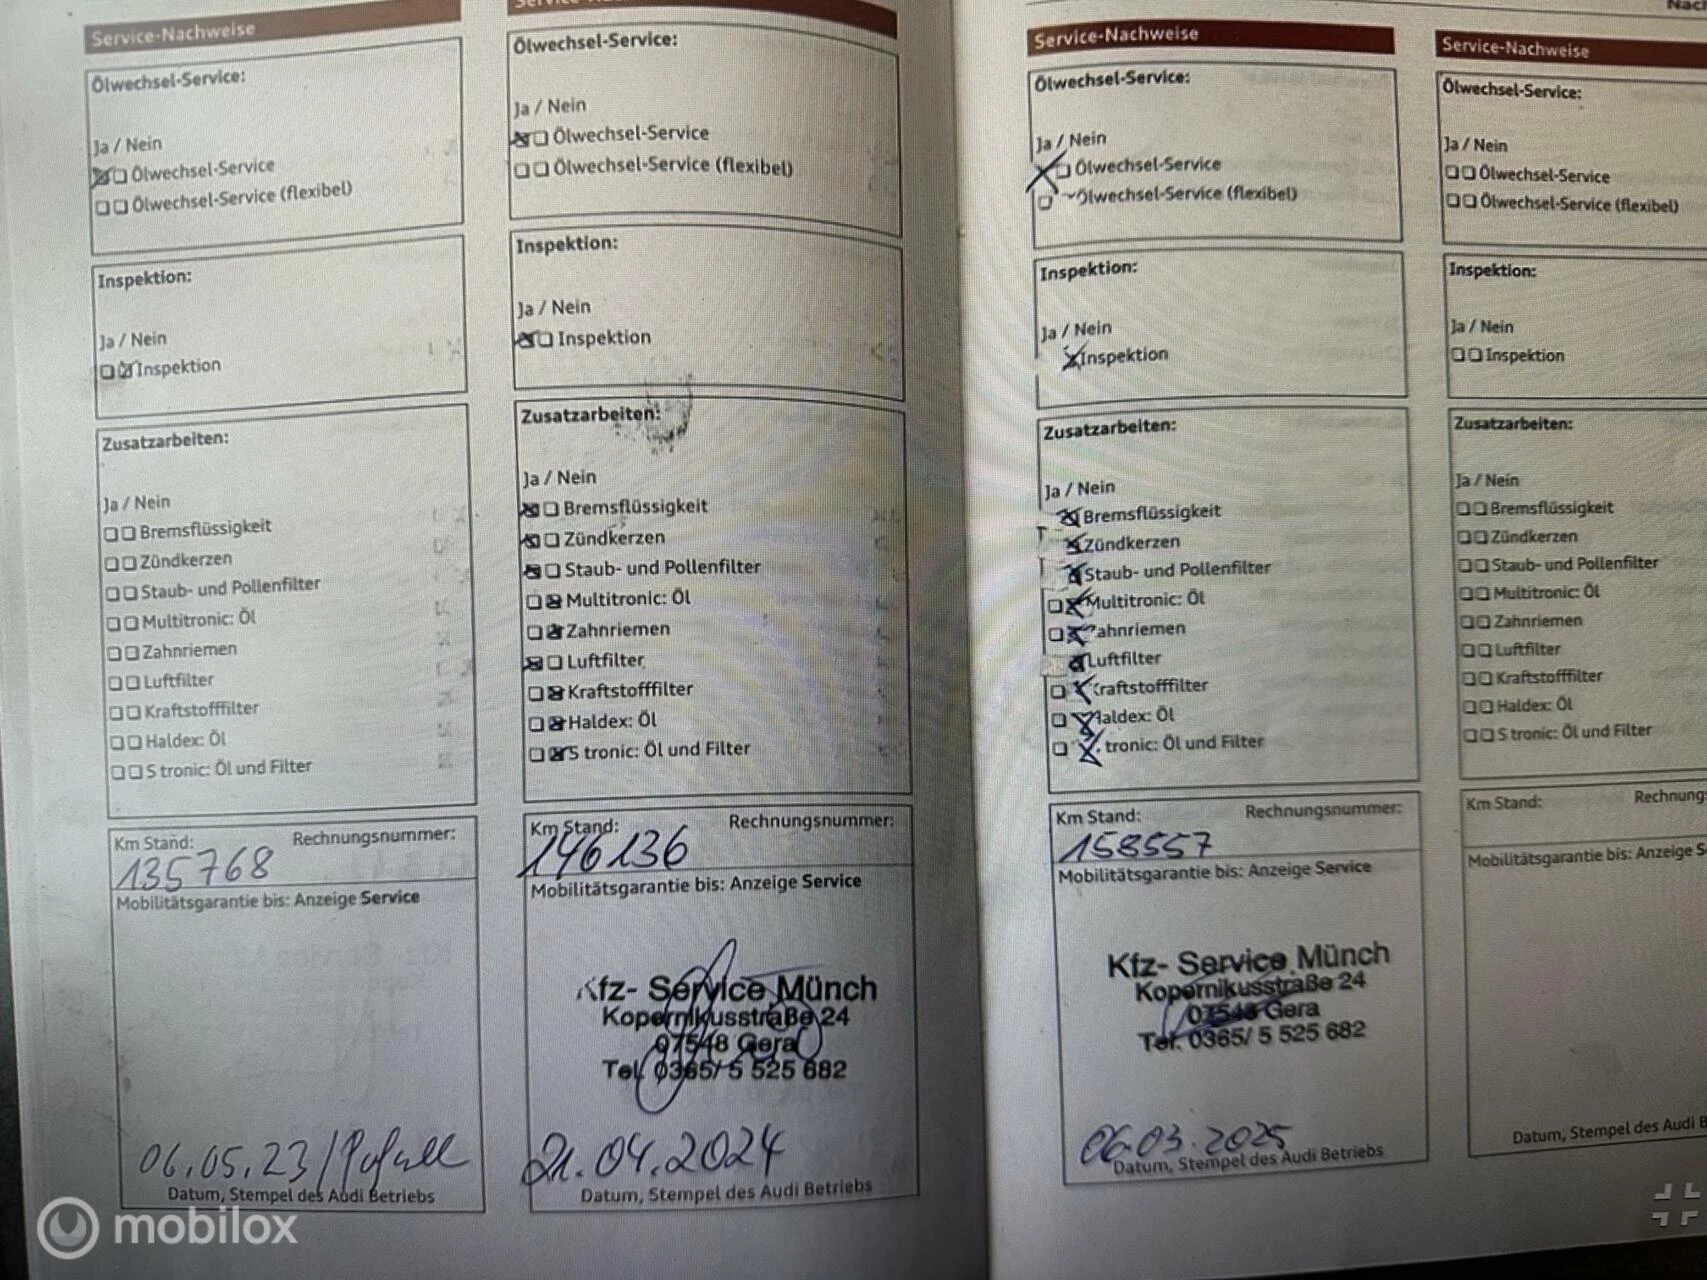 Service-Nachweise
Ölwechsel-Service:
Ja / Nein
Ölwechsel-Service
Ölwechsel-Service (flexibel)
Inspektion:
Ja / Nein
Inspektion
Zusatzarbeiten:
Ja / Nein
Bremsflüssigkeit
Zündkerzen
Staub- und Pollenfilter
Multitronic: Öl
Zahnriemen
Luftfilter
Kraftstofffilter
Haldex: Öl
S tronic: Öl und Filter
Km Stand: Rechnungsnummer:
135768
Mobilitätsgarantie bis: Anzeige Service
06.05.23/
Datum, Stempel des Audi Betriebs
Ölwechsel-Service:
Ja / Nein
Ölwechsel-Service
Ölwechsel-Service (flexibel)
Inspektion:
Ja / Nein
Inspektion
Zusatzarbeiten:
Ja / Nein
Bremsflüssigkeit
Zündkerzen
Staub- und Pollenfilter
Multitronic: Öl
Zahnriemen
Luftfilter
Kraftstofffilter
Haldex: Öl
S tronic: Öl und Filter
Km Stand: Rechnungsnummer:
146136
Mobilitätsgarantie bis: Anzeige Service
Kfz- Service Münch
Kopernikusstraße 24
07548 Gera
Tel. 0365/ 5 525 682
21.04.2024
Datum, Stempel des Audi Betriebs
Service-Nachweise
Ölwechsel-Service:
Ja / Nein
Ölwechsel-Service
Ölwechsel-Service (flexibel)
Inspektion:
Ja / Nein
Inspektion
Zusatzarbeiten:
Ja / Nein
Bremsflüssigkeit
Zündkerzen
Staub- und Pollenfilter
Multitronic: Öl
Zahnriemen
Luftfilter
Kraftstofffilter
Haldex: Öl
tronic: Öl und Filter
Km Stand: Rechnungsnummer:
158557
Mobilitätsgarantie bis: Anzeige Service
Kfz- Service Münch
Kopernikusstraße 24
07548 Gera
Tel. 0365/ 5 525 682
06.03.2025
Datum, Stempel des Audi Betriebs
Service-Nachweise
Ölwechsel-Service:
Ja / Nein
Ölwechsel-Service
Ölwechsel-Service (flexibel)
Inspektion:
Ja / Nein
Inspektion
Zusatzarbeiten:
Ja / Nein
Bremsflüssigkeit
Zündkerzen
Staub- und Pollenfilter
Multitronic: Öl
Zahnriemen
Luftfilter
Kraftstofffilter
Haldex: Öl
S tronic: Öl und Filter
Km Stand: Rechnung
Mobilitätsgarantie bis: Anzeige S
Datum, Stempel des Audi B
mobilox